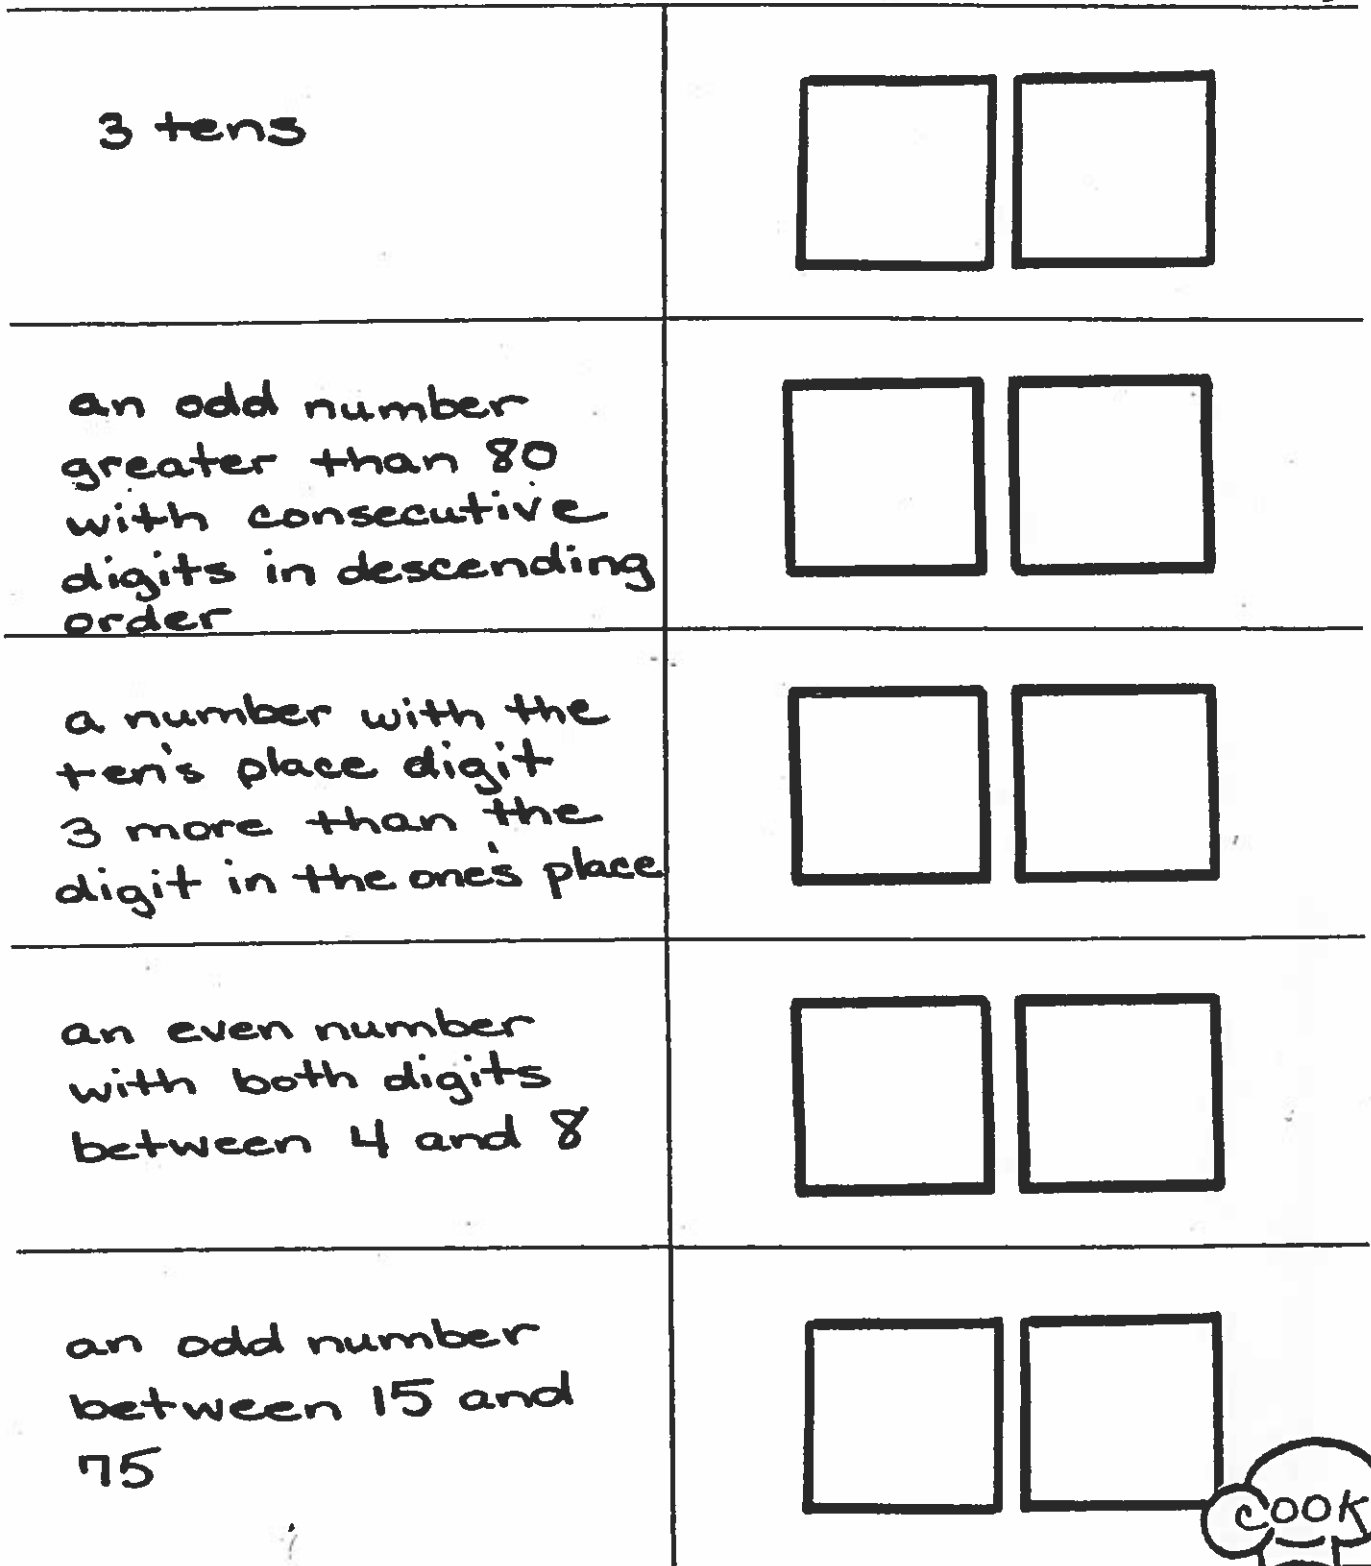 3 tens
an odd number
greater than 80
with consecutive
digits in descending
order
a number with the
ten's place digit
3 more than the
digit in the one's place
an even number
with both digits
between 4 and 8
an odd number
between 15 and
75
COOK